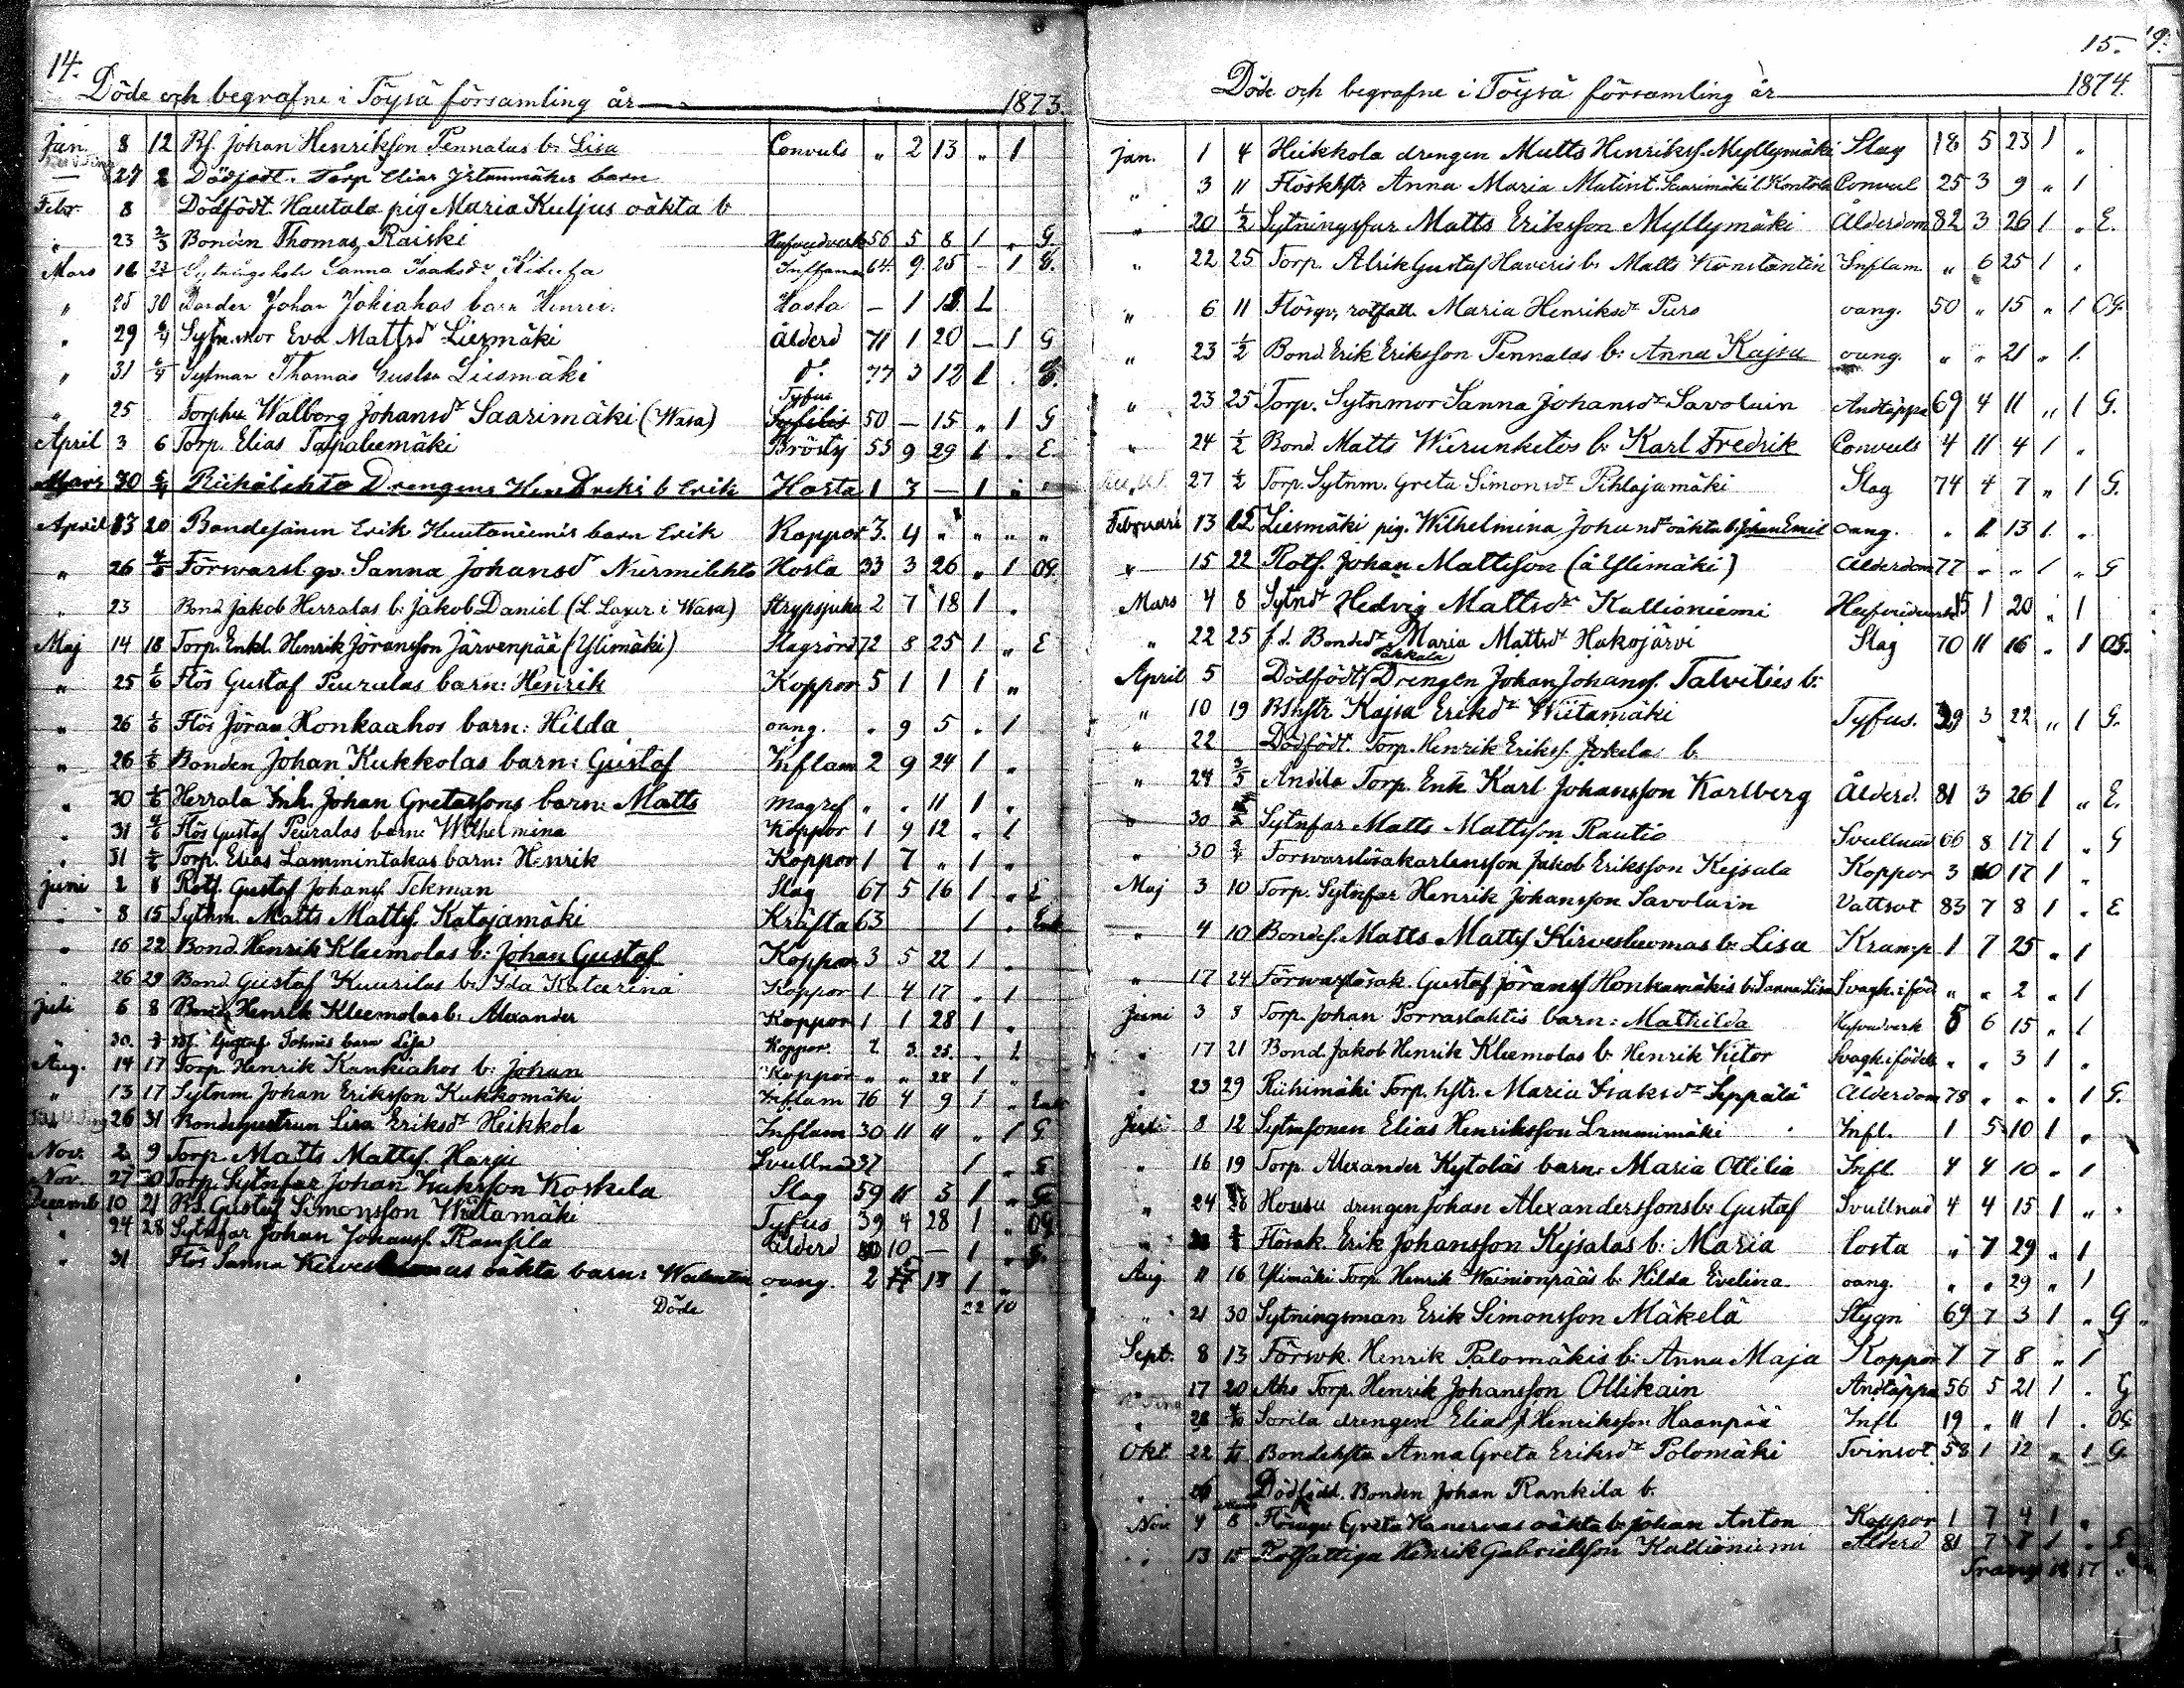 14.
Döde och begrafne i Töysä församling år 1873.
Jan. 8 12 Bs. Johan Henriksson Pennalas b. Lisa Convuls " 2 13 " 1
27 2 Dödfödt. Torp Elias barn
Febr. 8 Dödfödt. Hautala pig Maria Kuljus oäkta b
" 23 2/3 Bonden Thomas Raiski Hufvudverk 56 5 8 1 " G.
Mars 16 Sanna Isaksdr Inflama 64 9 25 - 1 G.
" 25 30 Bonden Johan Jokiahos barn Henric Hosta - 1 1
" 29 Sytn.mor Eva Mattsdr Liesmäki Ålderd 71 1 20 - 1 G
" 31 Sytman Thomas Liesmäki do 77 3 12 1 . G.
" 25 Torphu Walborg Johansdr Saarimäki (Wasa) Tyfus 50 - 15 " 1 G
April 3 6 Torp. Elias Tapaleemäki Bröstsj 53 9 29 1 . E.
Mars 30 Riihilehto Drengens b Erik Hosta 1 3 - 1 "
April 13 20 Bondesonen Erik Huutoniemis barn Erik Koppor 3. 4 " " " "
" 26 4/5 Förwarsl. qv. Sanna Johansdr Nurmilehto Hosta 33 3 26 " 1 OG.
" 23 Bond Jakob Herralas b: Jakob Daniel (L Laxer i Wasa) Strypsjuka 2 7 18 1 .
Maj 14 18 Torp. Enkl. Henrik Jöransson Järvenpää (Ylimäki) Slagrörd 72 8 25 1 " E
" 25 1/6 Flös Gustaf Peuralas barn: Henrik Koppor 5 1 1 1 "
" 26 1/6 Flös Jöran Honkaahos barn: Hilda oang. " 9 5 " 1
" 26 1/6 Bonden Johan Kukkolas barn: Gustaf Inflam 2 9 24 1 "
" 30 1/6 Herrala Inh. Johan Gretassons barn: Matts Magref " " 11 1 "
" 31 4/6 Flös Gustaf Peuralas barn: Wilhelmina Koppor 1 9 12 " 1
" 31 Torp. Elias Lammintakas barn: Henrik Koppor 1 7 " 1 "
Juni 2 8 Rotf. Gustaf Johans. Tekman Slag 67 5 16 1 " E
" 8 15 Sytnm. Matts Mattss. Katajamäki Kräfta 63 1 . Enk
" 16 22 Bond. Henrik Kleemolas b: Johan Gustaf Koppor 3 5 22 1 .
" 26 29 Bond. Gustaf Kuurilas b: Ida Katarina Koppor 1 4 17 " 1
Juli 6 8 Bond. Henrik Kleemolas b: Alexander Koppor 1 1 28 1 .
30. Gustaf barn Lisa Koppor 25. . 1
Aug. 14 17 Torp. Henrik Kankiahos b: Johan Koppor " " 28 1 "
" 13 17 Sytnm. Johan Eriksson Kukkomäki Inflam 76 4 9 1 . Enk
26 31 Lisa Eriksdr Heikkola Inflam 30 11 11 " 1 G
Nov. 2 9 Torp. Matts Mattss. Harju Svullnad 37 1 " G
Nov. 27 30 Torp. Sytnfar Johan Isaksson Koskela Slag 59 11 3 1 " G
Decemb 10 21 Bs. Gustaf Simonsson Wiitamäki Tyfus 39 4 28 1 " OG
" 24 28 Sytnfar Johan Johanss. Ranfila Ålderd 10 — 1 . G.
" 31 Flös Sanna oäkta barn: Walentin oang. 2 5 18 1 "
Döde 22 10
15.
Döde och begrafne i Töysä församling år 1874.
Jan. 1 4 Heikkola drengen Matts Henrikss. Myllymäki Slag 18 5 23 1 "
" 3 11 Flöskhstr Anna Maria Matint. Saarimäki Convul 25 3 9 " 1
" 20 1/2 Sytningsfar Matts Eriksson Myllymäki Ålderdom 82 3 26 1 " E.
" 22 25 Torp. Alrik Gustaf Haveris b: Matts Konstantin Inflam " 6 25 1 "
" 6 11 Flösqv. rotfatt. Maria Henriksdr Puro oang. 50 " 15 " 1 OG.
" 23 1/2 Bond. Erik Eriksson Pennalas b: Anna Kajsa oang. " " 21 " 1
" 23 25 Torp. Sytnmor Sanna Johansdr Savoluin Andtäppa 69 4 11 " 1 G.
" 24 1/2 Bond. Matts Wierunketos b: Karl Fredrik Convuls 4 11 4 1 "
27 1/2 Torp. Sytnm. Greta Simonsdr Pihlajamäki Slag 74 4 7 " 1 G.
Februari 13 15 Liesmäki pig. Wilhelmina Johansdr oäkta b: Johan Emil oang. " 1 13 1 "
" 15 22 Rotf. Johan Mattsson (å Ylimäki) Ålderdom 77 " " 1 " G
Mars 4 8 Sytndr Hedvig Mattsdr Kallioniemi Hufvudverk 15 1 20 " 1
" 22 25 f.d. Bondedr Maria Mattsdr Hakojärvi Slag 70 11 16 " 1 OG.
April 5 Dödfödt, Pakkala Drengen Johan Johanss. Talvities b:
" 10 19 Bshstr Kajsa Eriksdr Wiitamäki Tyfus. 39 3 22 " 1 G.
" 22 Dödfödt. Torp. Henrik Erikss. Jokela b.
" 24 3/5 Anitila Torp. Enk Karl Johansson Karlberg Ålderd. 81 3 26 1 " E.
" 30 Sytnfar Matts Mattsson Rautio Svullnad 66 8 17 1 " G
" 30 Forswarslösakarlensson Jakob Eriksson Kejsala Koppor 3 10 17 1 "
Maj 3 10 Torp. Sytnfar Henrik Johansson Savoluin Vattsot 83 7 8 1 " E
" 4 10 Bondes. Matts Mattss Kirvesluomas b: Lisa Kramp 1 7 25 " 1
" 17 24 Förswarslösak. Gustaf Jöranss Honkamäkis b: Sanna Lisa Svagh. i föd " " 2 " 1
Juni 3 8 Torp. Johan Porraslahtis barn: Mathilda Hufvudverk 5 6 15 " 1
" 17 21 Bond. Jakob Henrik Kleemolas b: Henrik Victor Svagh. i födels " " 3 1 "
" 23 29 Riihimäki Torp. hstr. Maria Isaksdr Seppälä Ålderdom 78 " " " 1 G.
Juli 8 12 Sytnsonen Elias Henriksson Lammimäki Infl. 1 5 10 1 "
" 16 19 Torp. Alexander Kytoläs barn: Maria Ottilia Infl. 4 4 10 " 1
" 24 26 Housu drengen Johan Alexanderssons b: Gustaf Svullnad 4 4 15 1 " "
" Flösak. Erik Johansson Kejsalas b: Maria Hosta " 7 29 " 1
Aug. 11 16 Ylimäki Torp. Henrik Wainionpääs b: Hilda Evelina oang. " " 29 " 1
" 21 30 Sytningsman Erik Simonsson Mäkelä Stygn 69 7 3 1 " G.
Sept. 8 13 Förswk. Henrik Palomäkis b: Anna Maja Koppor 7 7 8 " 1
17 20 Aho Torp. Henrik Johansson Ollikain Andtäppa 56 5 21 1 . G
" 28 4/10 Sorila drengen Elias Henriksson Haanpää Infl. 19 " 11 1 . OG
Okt. 22 1/11 Bondehstr Anna Greta Eriksdr Polomäki Tvinsot. 58 1 12 " 1 G.
" 26 Dödfödd. Bonden Johan Rankila b.
Nov. 4 8 Greta oäkta b: Johan Anton Koppor 1 7 4 1 "
" 13 15 Rotfattiga Henrik Gabrielsson Kallioniemi Ålderd 81 7 7 1 " E
Transp 18 17